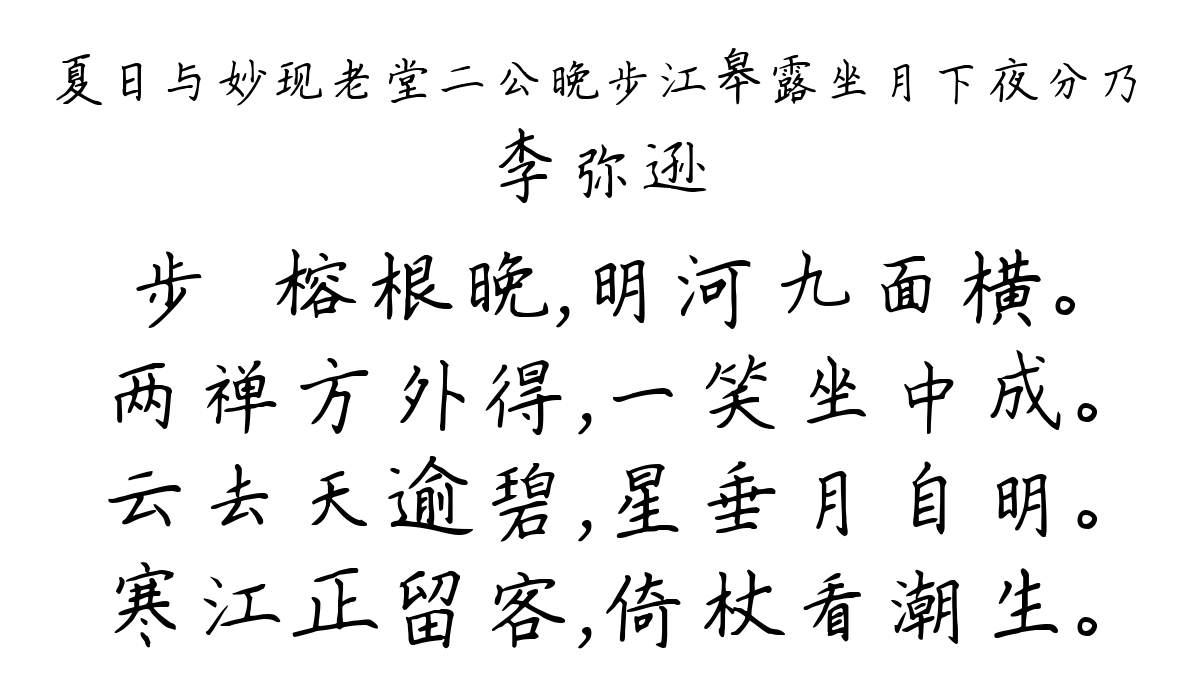 夏日与妙现老堂二公晚步江皋露坐月下夜分乃
李弥逊
步 榕根晚,明河九面横。
两禅方外得,一笑坐中成。
云去天逾碧,星垂月自明。
寒江正留客,倚杖看潮生。